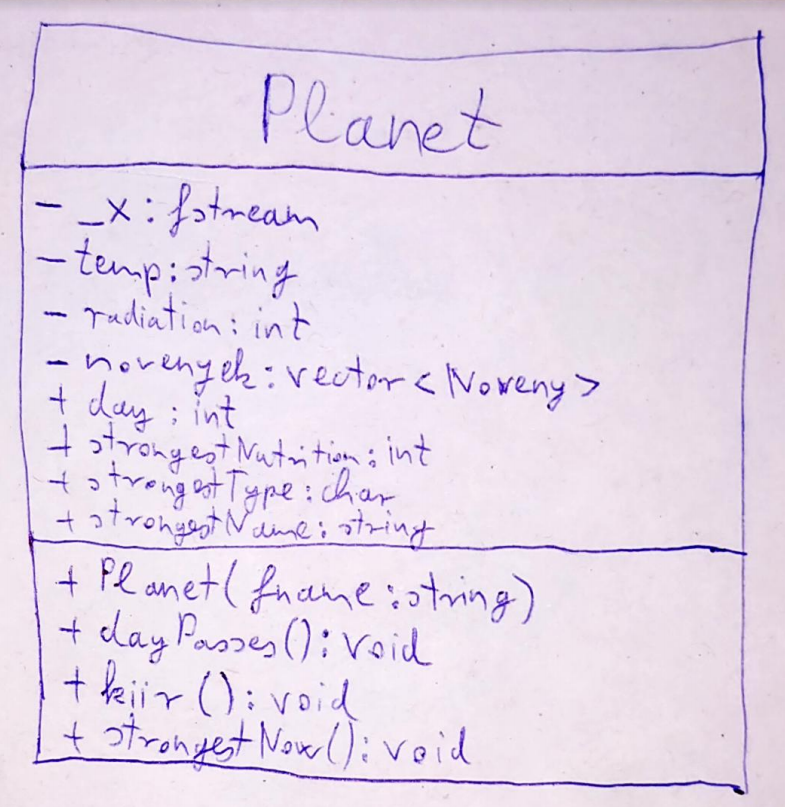 Planet
- _x : fstream
- temp : string
- radiation : int
- novenyek : vector < Noveny >
+ day : int
+ strongestNutrition : int
+ strongestType : char
+ strongestName : string
+ Planet( fname : string )
+ dayPasses() : void
+ kiir () : void
+ strongestNow() : void